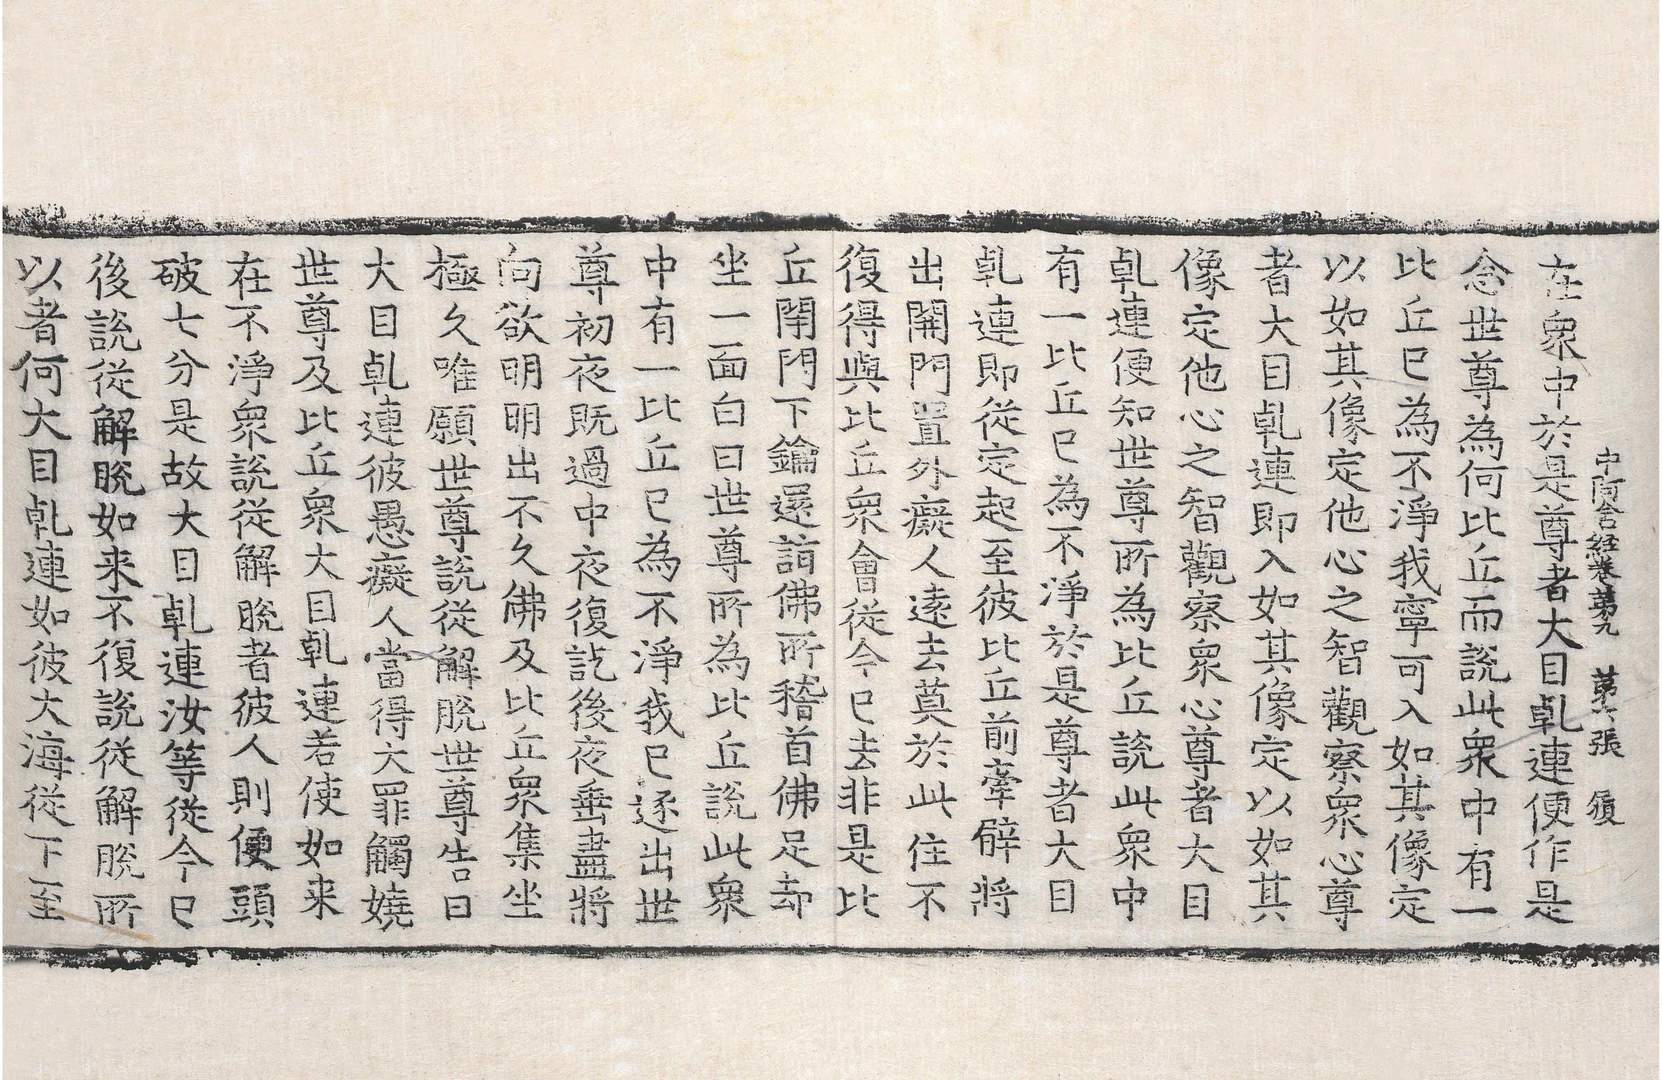 中阿含経卷第九　第二張　履
在衆中於是尊者大目乹連便作是
念世尊為何比丘而說此衆中有一
比丘已為不淨我寧可入如其像定
以如其像定他心之智觀察衆心尊
者大目乹連即入如其像定以如其
像定他心之智觀察衆心尊者大目
乹連便知世尊所為比丘說此衆中
有一比丘已為不淨於是尊者大目
乹連即從定起至彼比丘前牽臂將
出開門置外癡人遠去莫於此住不
復得與比丘衆會從今已去非是比
丘閇門下鑰還詣佛所稽首佛足却
坐一面白曰世尊所為比丘說此衆
中有一比丘已為不淨我已逐出世
尊初夜既過中夜復訖後夜垂盡將
向欲明明出不久佛及比丘衆集坐
極久唯願世尊說從解脫世尊告曰
大目乹連彼愚癡人當得大罪觸嬈
世尊及比丘衆大目乹連若使如来
在不淨衆說從解脫者彼人則便頭
破七分是故大目乹連汝等從今已
後說從解脫如来不復說從解脫所
以者何大目乹連如彼大海從下至